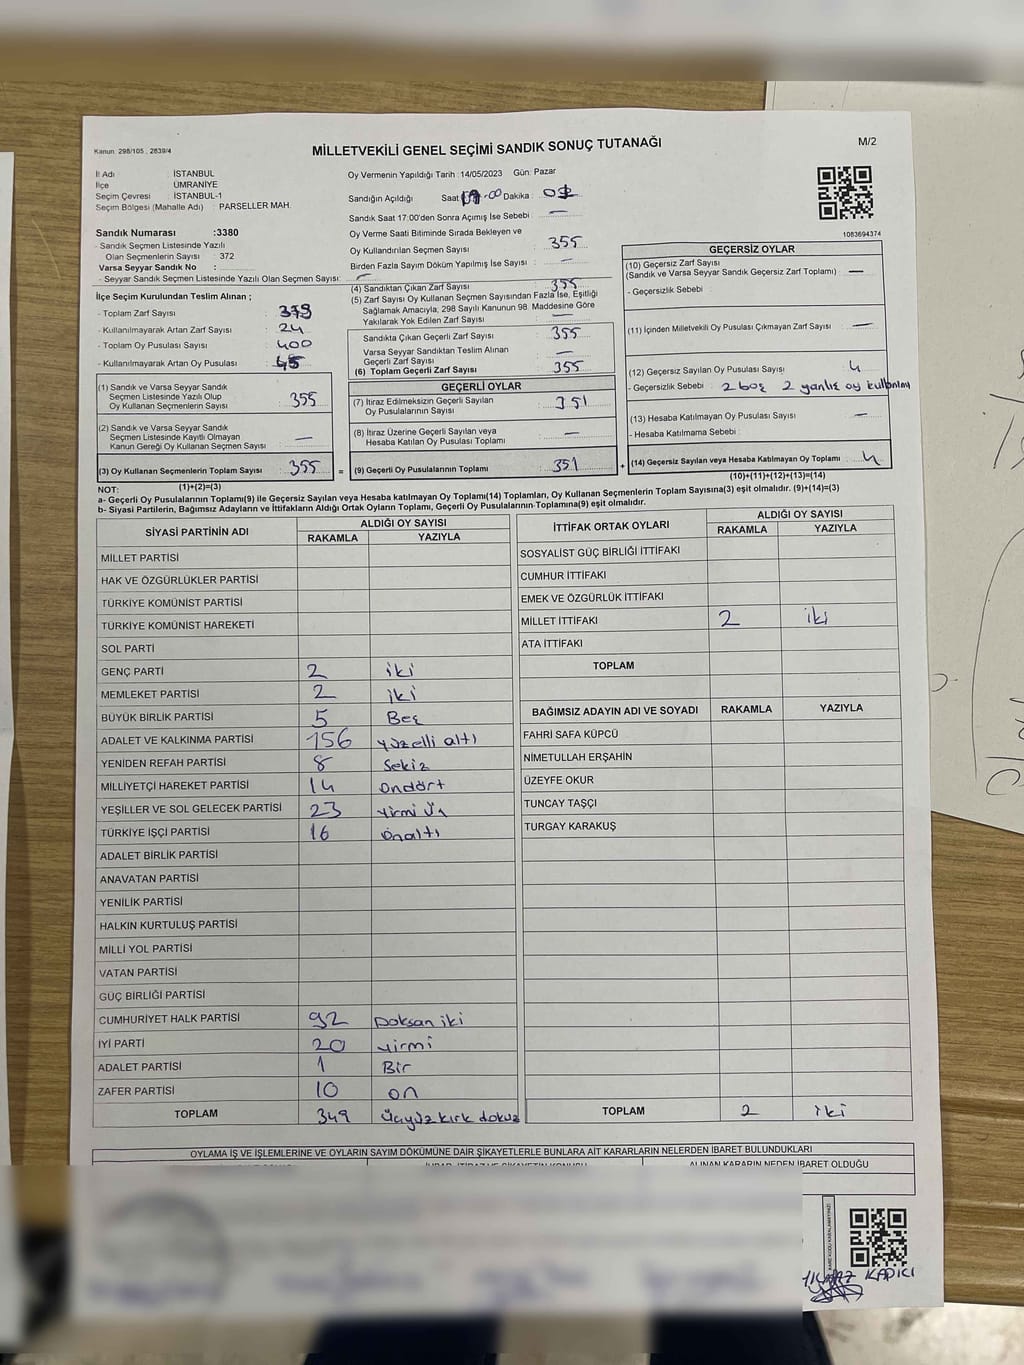 Kanun: 298/105 , 2839/4
MİLLETVEKİLİ GENEL SEÇİMİ SANDIK SONUÇ TUTANAĞI
M/2
İl Adı : İSTANBUL
İlçe : ÜMRANİYE
Seçim Çevresi : İSTANBUL-1
Seçim Bölgesi (Mahalle Adı) : PARSELLER MAH.
Sandık Numarası :3380
- Sandık Seçmen Listesinde Yazılı
Olan Seçmenlerin Sayısı : 372
Varsa Seyyar Sandık No :
- Seyyar Sandık Seçmen Listesinde Yazılı Olan Seçmen Sayısı: —
İlçe Seçim Kurulundan Teslim Alınan ;
- Toplam Zarf Sayısı : 379
- Kullanılmayarak Artan Zarf Sayısı : 24
- Toplam Oy Pusulası Sayısı : 400
- Kullanılmayarak Artan Oy Pusulası : 45
(1) Sandık ve Varsa Seyyar Sandık
Seçmen Listesinde Yazılı Olup
Oy Kullanan Seçmenlerin Sayısı : 355
(2) Sandık ve Varsa Seyyar Sandık
Seçmen Listesinde Kayıtlı Olmayan
Kanun Gereği Oy Kullanan Seçmen Sayısı : —
(3) Oy Kullanan Seçmenlerin Toplam Sayısı : 355 =
(1)+(2)=(3)
Oy Vermenin Yapıldığı Tarih :14/05/2023 Gün: Pazar
Sandığın Açıldığı Saat :00 Dakika :
Sandık Saat 17:00'den Sonra Açılmış İse Sebebi : —
Oy Verme Saati Bitiminde Sırada Bekleyen ve
Oy Kullandırılan Seçmen Sayısı : 355
Birden Fazla Sayım Döküm Yapılmış İse Sayısı : —
(4) Sandıktan Çıkan Zarf Sayısı : 355
(5) Zarf Sayısı Oy Kullanan Seçmen Sayısından Fazla İse, Eşitliği
Sağlamak Amacıyla, 298 Sayılı Kanunun 98. Maddesine Göre
Yakılarak Yok Edilen Zarf Sayısı : —
Sandıkta Çıkan Geçerli Zarf Sayısı : 355
Varsa Seyyar Sandıktan Teslim Alınan
Geçerli Zarf Sayısı : —
(6) Toplam Geçerli Zarf Sayısı : 355
GEÇERLİ OYLAR
(7) İtiraz Edilmeksizin Geçerli Sayılan
Oy Pusulalarının Sayısı : 351
(8) İtiraz Üzerine Geçerli Sayılan veya
Hesaba Katılan Oy Pusulası Toplamı : —
(9) Geçerli Oy Pusulalarının Toplamı : 351 +
1083694374
GEÇERSİZ OYLAR
(10) Geçersiz Zarf Sayısı
(Sandık ve Varsa Seyyar Sandık Geçersiz Zarf Toplamı) : —
- Geçersizlik Sebebi :
(11) İçinden Milletvekili Oy Pusulası Çıkmayan Zarf Sayısı : —
(12) Geçersiz Sayılan Oy Pusulası Sayısı : 4
- Geçersizlik Sebebi : 2 boş 2 yanlış oy kullanımı
(13) Hesaba Katılmayan Oy Pusulası Sayısı : —
- Hesaba Katılmama Sebebi :
(14) Geçersiz Sayılan veya Hesaba Katılmayan Oy Toplamı : 4
(10)+(11)+(12)+(13)=(14)
NOT:
a- Geçerli Oy Pusulalarının Toplamı(9) ile Geçersiz Sayılan veya Hesaba katılmayan Oy Toplamı(14) Toplamları, Oy Kullanan Seçmenlerin Toplam Sayısına(3) eşit olmalıdır. (9)+(14)=(3)
b- Siyasi Partilerin, Bağımsız Adayların ve İttifakların Aldığı Ortak Oyların Toplamı, Geçerli Oy Pusulalarının Toplamına(9) eşit olmalıdır.
SİYASİ PARTİNİN ADI ALDIĞI OY SAYISI
RAKAMLA YAZIYLA
MİLLET PARTİSİ
HAK VE ÖZGÜRLÜKLER PARTİSİ
TÜRKİYE KOMÜNİST PARTİSİ
TÜRKİYE KOMÜNİST HAREKETİ
SOL PARTİ
GENÇ PARTİ 2 iki
MEMLEKET PARTİSİ 2 iki
BÜYÜK BİRLİK PARTİSİ 5 Beş
ADALET VE KALKINMA PARTİSİ 156 yüzelli altı
YENİDEN REFAH PARTİSİ 8 Sekiz
MİLLİYETÇİ HAREKET PARTİSİ 14 Ondört
YEŞİLLER VE SOL GELECEK PARTİSİ 23 Yirmi Üç
TÜRKİYE İŞÇİ PARTİSİ 16 Onaltı
ADALET BİRLİK PARTİSİ
ANAVATAN PARTİSİ
YENİLİK PARTİSİ
HALKIN KURTULUŞ PARTİSİ
MİLLİ YOL PARTİSİ
VATAN PARTİSİ
GÜÇ BİRLİĞİ PARTİSİ
CUMHURİYET HALK PARTİSİ 92 Doksan iki
İYİ PARTİ 20 Yirmi
ADALET PARTİSİ 1 Bir
ZAFER PARTİSİ 10 on
TOPLAM 349 Üçyüz kırk dokuz
İTTİFAK ORTAK OYLARI ALDIĞI OY SAYISI
RAKAMLA YAZIYLA
SOSYALİST GÜÇ BİRLİĞİ İTTİFAKI
CUMHUR İTTİFAKI
EMEK VE ÖZGÜRLÜK İTTİFAKI
MİLLET İTTİFAKI 2 iki
ATA İTTİFAKI
TOPLAM
BAĞIMSIZ ADAYIN ADI VE SOYADI RAKAMLA YAZIYLA
FAHRİ SAFA KÜPCÜ
NİMETULLAH ERŞAHİN
ÜZEYFE OKUR
TUNCAY TAŞÇI
TURGAY KARAKUŞ
TOPLAM 2 iki
OYLAMA İŞ VE İŞLEMLERİNE VE OYLARIN SAYIM DÖKÜMÜNE DAİR ŞİKAYETLERLE BUNLARA AİT KARARLARIN NELERDEN İBARET BULUNDUKLARI
ALINAN KARARIN NEDEN İBARET OLDUĞU
KADICI